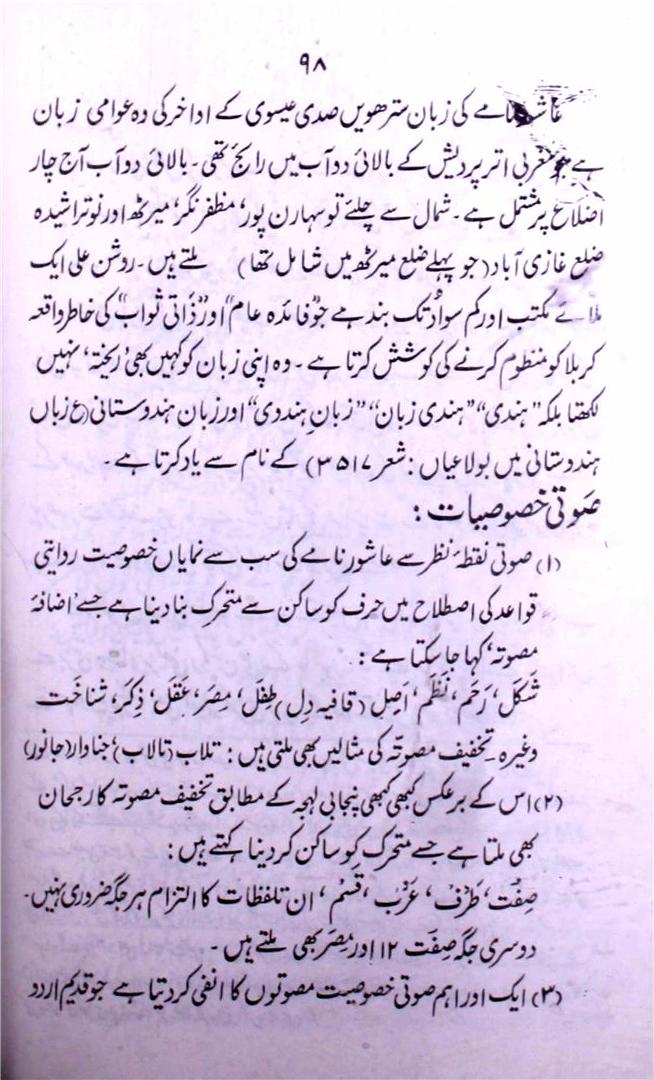 ۹۸
عاشور نامے کی زبان سترھویں صدی عیسوی کے اواخر کی وہ عوامی زبان
ہے جو مغربی اتر پردیش کے بالائی دوآب میں رائج تھی۔ بالائی دوآب آج چار
اضلاع پر مشتمل ہے۔ شمال سے چلئے تو سہارن پور، مظفر نگر، میرٹھ اور نوتراشیدہ
ضلع غازی آباد (جو پہلے ضلع میرٹھ میں شامل تھا) ملتے ہیں۔ روشن علی ایک
ملائے مکتب اور کم سواد تک بند ہے جو "فائدہ عام" اور "ذاتی ثواب" کی خاطر واقعہ
کربلا کو منظوم کرنے کی کوشش کرتا ہے۔ وہ اپنی زبان کو کہیں بھی 'ریختہ' نہیں
لکھتا بلکہ "ہندی" "ہندی زبان" "زبانِ ہندوی" اور زبان ہندوستانی (ع زباں
ہندوستانی میں بولا عیاں : شعر ۳۵۱۷) کے نام سے یاد کرتا ہے۔
صَوتی خصوصیات :
(۱) صوتی نقطۂ نظر سے عاشور نامے کی سب سے نمایاں خصوصیت روایتی
قواعد کی اصطلاح میں حرف کو ساکن سے متحرک بنا دینا ہے جسے 'اضافۂ
مصوتہ' کہا جا سکتا ہے :
شَکَل، رَحَم، نَظَم، اَصِل (قافیہ دِل) طِفَل، مِصَر، عَقَل، ذِکَر، شناخَت
وغیرہ۔ تخفیف مصوتہ کی مثالیں بھی ملتی ہیں : تلاب (تالاب)، جناوار (جانور)
(۲) اس کے برعکس کبھی کبھی پنجابی لہجہ کے مطابق تخفیف مصوتہ کا رجحان
بھی ملتا ہے جسے متحرک کو ساکن کر دینا کہتے ہیں :
صِفْت، طَرْف، عَرْب، قَسْم، ان تلفظات کا التزام ہر جگہ ضروری نہیں۔
دوسری جگہ صِفَت ۱۲ اور مِصَر بھی ملتے ہیں۔
(۳) ایک اور اہم صوتی خصوصیت مصوتوں کا انفی کر دیتا ہے جو قدیم اردو